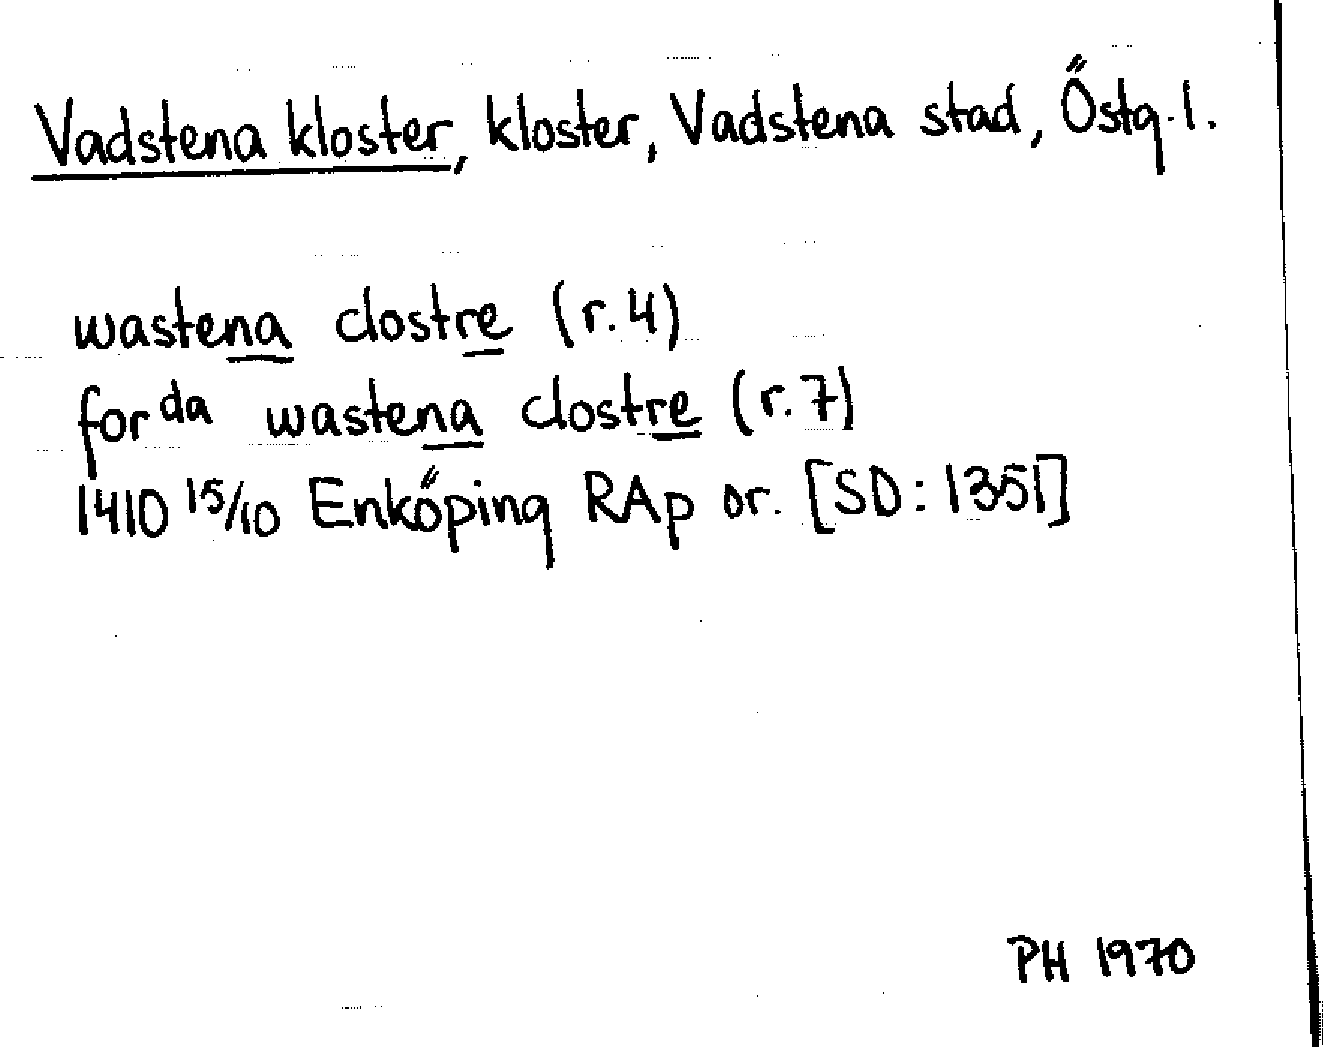 Vadstena kloster, kloster, Vadstena stad, Östg.l.
wastena clostre (r.4)
forda wastena clostre (r.7)
1410 15/10 Enköping RAp or. [SD: 1351]
PH 1970